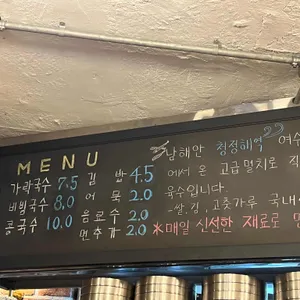 MENU
가락국수 7.5
비빔국수 8.0
콩국수 10.0
김밥 4.5
어묵 2.0
음료수 2.0
면추가 2.0
남해안 청정해역 여수
에서 온 고급멸치로 직
육수입니다.
-쌀, 김, 고춧가루 국내
*매일 신선한 재료로